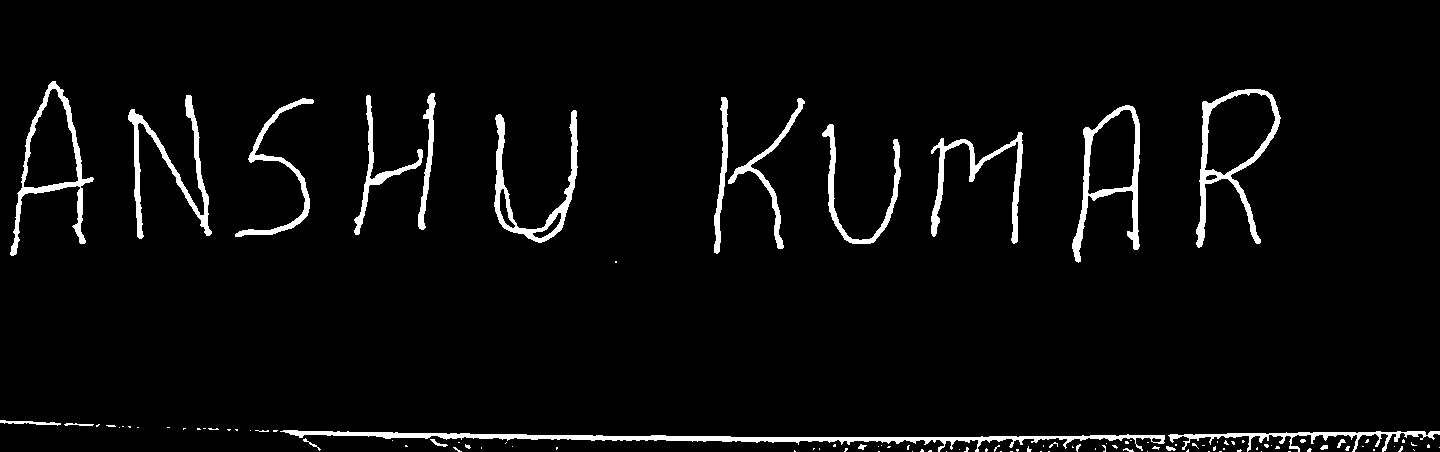 ANSHU KUMAR